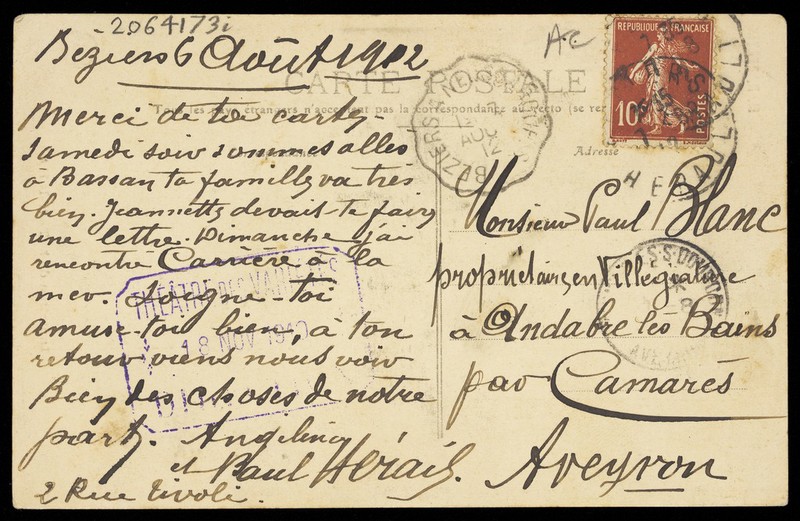 2064173i
Ac
Béziers 6 Août 1912
CARTE POSTALE
Tous les pays étrangers n'acceptent pas la correspondance au recto (se
Adresse
Merci de ta carte-
Samedi soir sommes allés
à Bassan ta famille va très
bien. Jeannette devait te faire
une lettre. Dimanche j'ai
rencontré Carrière à la
mer. Soigne-toi
amuse-toi bien, à ton
retour viens nous voir
Bien des choses de notre
part. Angelina
et Paul Hérail.
2 Rue Tivoli.
Monsieur Paul Blanc
propriétaire en Villégiature
à Andabre les Bains
par Camarès
Aveyron
REPUBLIQUE FRANÇAISE
10
POSTES
HERAULT
AOU
12
THÉATRE DES VARIÉTÉS
18 NOV 1912